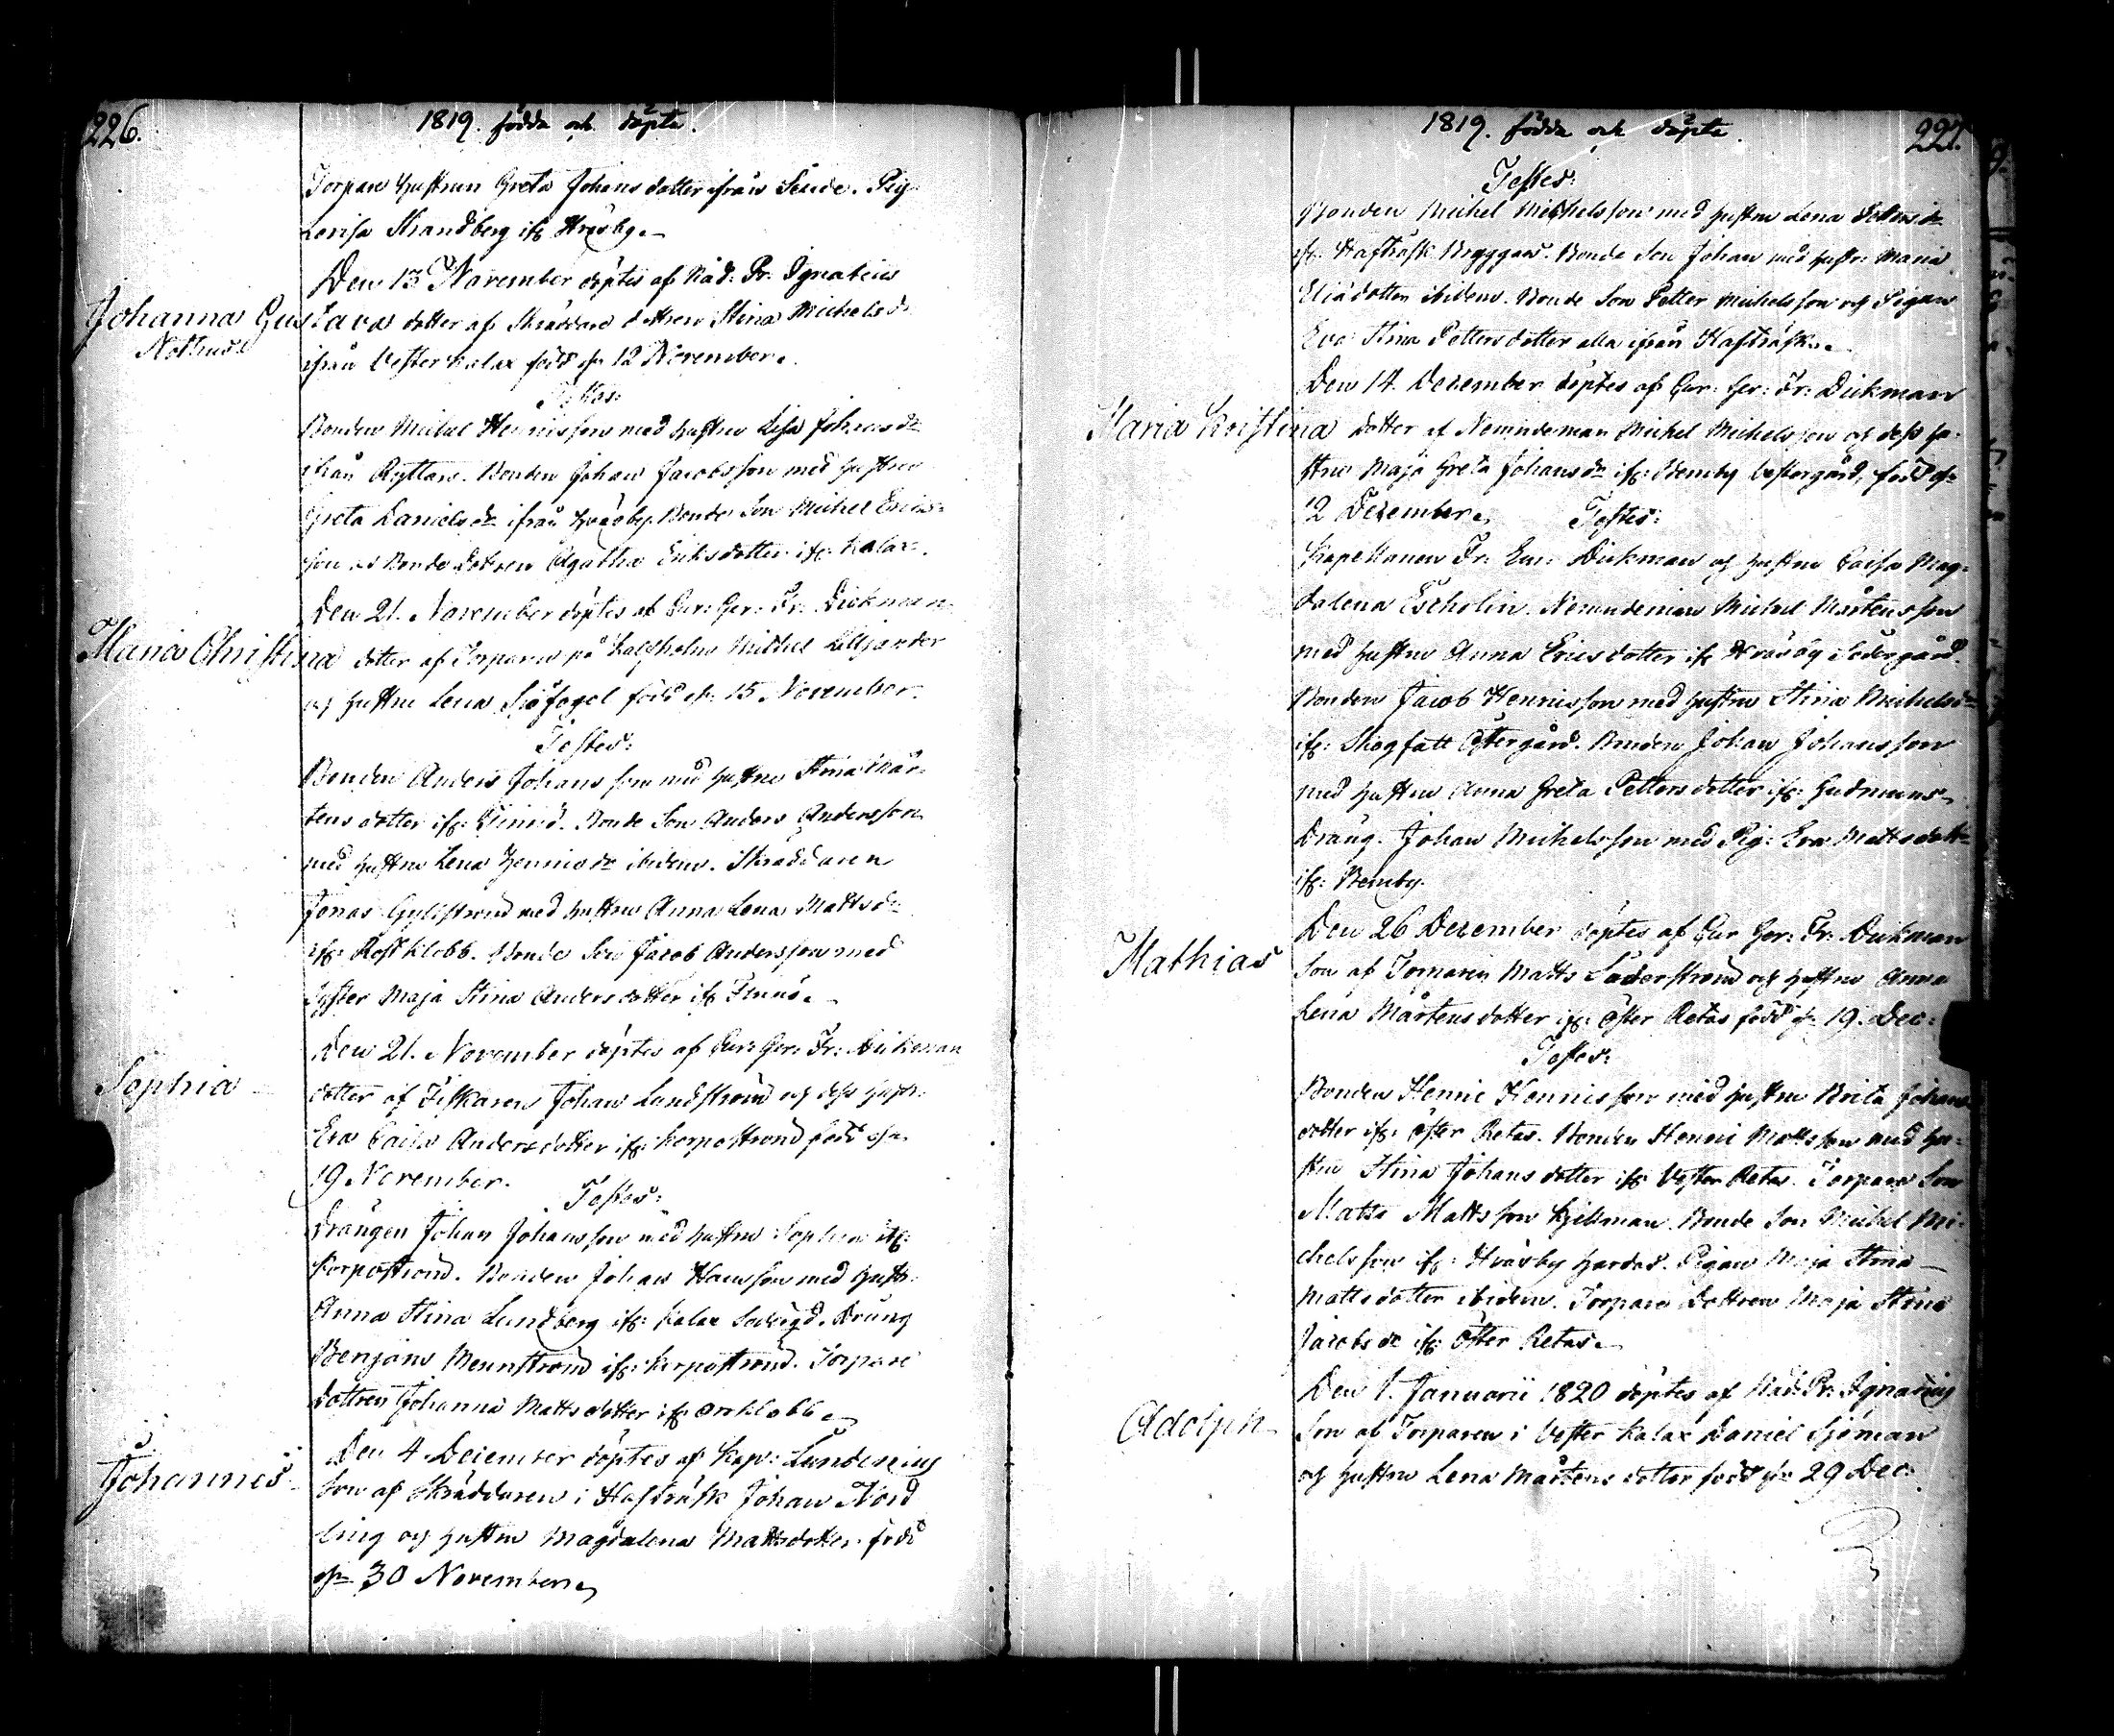 226.
1819. födda och döpta.
Torpare hustrun Greta Johansdotter ifrån Pig
Lovisa Strandberg ifr.
Den 13 November döptes af Nåd: Pr: Ignatius
Johanna Gustava dotter af Skräddare dottren Stina Michelsd:
Nothus
ifrån Vester Kalax född d. 12 November.
Testes:
Bonden Michel Hennisson med hustru Lisa Johansdr
ifrån Ryttars. Bonden Johan Jacobsson med hustru
Greta Danielsdr ifrån Bonde Son Michel Erics-
son Bonde dottren Agatha Eriksdotter ifr: Kalax.
Den 21. November döptes af Cur: Ger: Fr: Dickman
Maria Christina dotter af Torparen på Kalfholm Michel Lilljander
och hustru Lena Sjöfogel född d. 15 November.
Testes:
Bonden Anders Johansson med hustru Stina Mår-
tensdotter ifr: Bonde Son Anders Andersson
med hustru Lena Hennisdr ibidem. Skräddaren
Jonas med hustru Anna Lena Mattsd:
ifr: Bonde Son Jacob Andersson med
Syster Maja Stina Andersdotter ifr
Den 21. November döptes af Cur: Ger: Fr: Dickman
Sophia
dotter af Fiskaren Johan Lundström och dess hust:
Eva Caisa Andersdotter ifr: Korpoström född d.
19 November.
Testes:
Drängen Johan Johansson med hustru Sophia ifr:
Korpoström. Bonden Johan Hansson med hustr.
Anna Stina Lundberg ifr: Kalax Dräng
Benjam Wennström ifr: Korpoström. Torpare
dottren Johanna Mattsdotter ifr.
Den 4 December döptes af Kap: Lundenius
Johannes
Son af Skräddaren i Hafträsk Johan Nord
ling och hustru Magdalena Mattsdotter född
d. 30 November.
1819. födda och döpta.
227.
Testes:
Bonden Michel Michelsson med hustru Lena
ifr. Hafträsk Bryggars. Bonde Son Johan med hustr: Maria
Eliædotter ibidem. Bonde Son Petter Michelsson och Pigan
Eva Stina Pettersdotter alla ifrån Hafträsk.
Den 14. December döptes af Cur: Ger: Fr: Dickman
Maria Kristina dotter af Nemndeman Michel Michelsson och dess hu-
stru Maja Greta Johansdr ifr: Bemby Vestergård, född d.
12 December.
Testes:
Kapellanen Fr: Em: Dickman och hustru Caisa Mag-
dalena Escholin. Nemndeman Michel Mårtensson
med hustru Anna Ericsdotter ifr Södergård.
Bonden Jacob Hennisson med hustru Stina Michelsdr
ifr: Skogfatt Östergård. Bonden Johan Johansson
med hustru Anna Greta Pettersdotter ifr: Gudmuns.
Dräng. Johan Michelsson med Pig: Eva Mattsdott
ifr: Bemby.
Den 26 December döptes af Cur Ger: Fr: Dickman
Mathias
Son af Torparen Matts Söderström och hustru Anna
Lena Mårtensdotter ifr: Öster Retas född d. 19. Dec:
Testes:
Bonden Henric Hennisson med hustru Brita Johans-
dotter ifr: Öster Retas. Bonden Henric Mattsson med hu-
stru Stina Johansdotter ifr Vester Retas. Torpare Son
Matts Mattsson Kjellman. Bonde Son Michel Mi-
chelsson ifr: Pigan Maja Stina
Mattsdotter ibidem. Torpare Dottren Maja Stina
Jacobsdr ifr: Öster Retas.
Den 1. Januarii 1820 döptes af Nåd: Pr: Ignatius
Adolph
Son af Torparen i Vester Kalax Daniel Sjöman
och hustru Lena Mårtensdotter född d. 29 Dec: